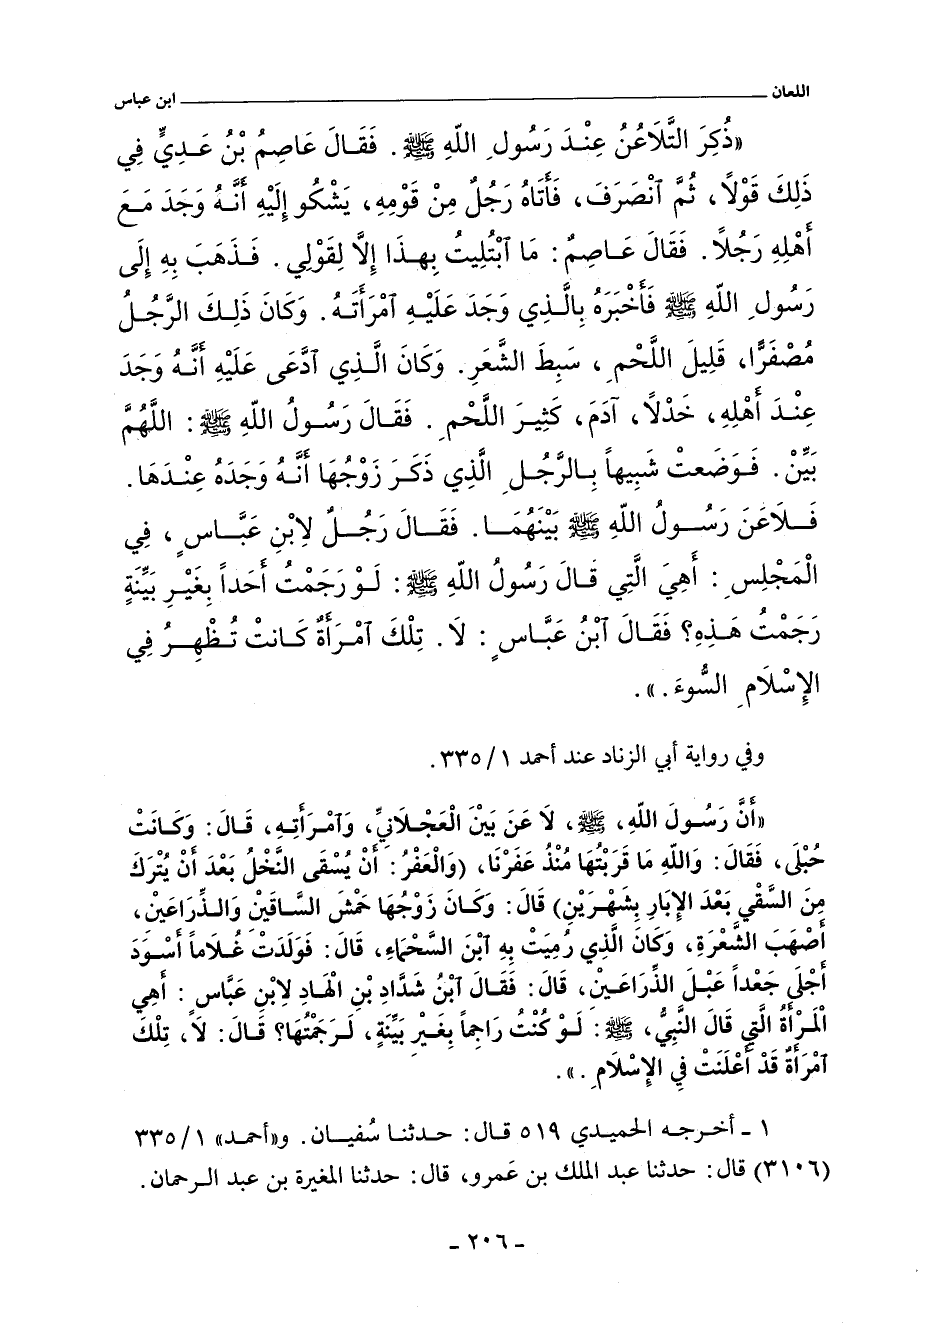 اللعان ــــــ ابن عباس
«ذُكِرَ التَّلَاعُنُ عِنْدَ رَسُولِ اللّهِ ﷺ. فَقَالَ عَاصِمُ بْنُ عَدِيٍّ فِي
ذَلِكَ قَوْلًا، ثُمَّ ٱنْصَرَفَ، فَأَتَاهُ رَجُلٌ مِنْ قَوْمِهِ، يَشْكُو إِلَيْهِ أَنَّهُ وَجَدَ مَعَ
أَهْلِهِ رَجُلًا. فَقَالَ عَاصِمٌ: مَا ٱبْتُلِيتُ بِهذَا إِلَّا لِقَوْلِي. فَذَهَبَ بِهِ إِلَى
رَسُولِ اللّهِ ﷺ فَأَخْبَرَهُ بِالَّذِي وَجَدَ عَلَيْهِ ٱمْرَأَتَهُ. وَكَانَ ذَلِكَ الرَّجُلُ
مُصْفَرًّا، قَلِيلَ اللَّحْمِ، سَبِطَ الشَّعَرِ. وَكَانَ الَّذِي ٱدَّعَى عَلَيْهِ أَنَّهُ وَجَدَ
عِنْدَ أَهْلِهِ، خَدْلًا، آدَمَ، كَثِيرَ اللَّحْمِ. فَقَالَ رَسُولُ اللّهِ ﷺ: اللَّهُمَّ
بَيِّنْ. فَوَضَعَتْ شَبِيهاً بِالرَّجُلِ الَّذِي ذَكَرَ زَوْجُهَا أَنَّهُ وَجَدَهُ عِنْدَهَا.
فَلَاعَنَ رَسُولُ اللّهِ ﷺ بَيْنَهُمَا. فَقَالَ رَجُلٌ لِابْنِ عَبَّاسٍ، فِي
الْمَجْلِسِ: أَهِيَ الَّتِي قَالَ رَسُولُ اللّهِ ﷺ: لَوْ رَجَمْتُ أَحَداً بِغَيْرِ بَيِّنَةٍ
رَجَمْتُ هَذِهِ؟ فَقَالَ ٱبْنُ عَبَّاسٍ: لَا. تِلْكَ ٱمْرَأَةٌ كَانَتْ تُظْهِرُ فِي
الإِسْلَامِ السُّوءَ.».
وفي رواية أبي الزناد عند أحمد ١/٣٣٥.
«أَنَّ رَسُولَ اللّهِ، ﷺ، لَا عَنَ بَيْنَ الْعَجْلَانِيِّ، وَٱمْرَأَتِهِ، قَالَ: وَكَانَتْ
حُبْلَى، فَقَالَ: وَاللّهِ مَا قَرَبْتُهَا مُنْذُ عَفَرْنَا، (وَالْعَفْرُ: أَنْ يُسْقَى النَّخْلُ بَعْدَ أَنْ يُتْرَكَ
مِنَ السَّقْيِ بَعْدَ الإِبَارِ بِشَهْرَيْنِ) قَالَ: وَكَانَ زَوْجُهَا حَمْشَ السَّاقَيْنِ وَالذِّرَاعَيْنِ،
أَصْهَبَ الشَّعْرَةِ، وَكَانَ الَّذِي رُمِيَتْ بِهِ ٱبْنَ السَّحْمَاءِ، قَالَ: فَوَلَدَتْ غُلَاماً أَسْوَدَ
أَجْلَى جَعْداً عَبْلَ الذِّرَاعَيْنِ، قَالَ: فَقَالَ ٱبْنُ شَدَّادِ بْنِ الْهَادِ لِابْنِ عَبَّاسٍ: أَهِيَ
الْمَرْأَةُ الَّتِي قَالَ النَّبِيُّ، ﷺ: لَوْ كُنْتُ رَاجِماً بِغَيْرِ بَيِّنَةٍ، لَرَجَمْتُهَا؟ قَالَ: لَا، تِلْكَ
ٱمْرَأَةٌ قَدْ أَعْلَنَتْ فِي الإِسْلَامِ.».
١ ـ أخرجه الحميدي ٥١٩ قال: حدثنا سُفيان. و«أحمد» ١/٣٣٥
(٣١٠٦) قال: حدثنا عبد الملك بن عَمرو، قال: حدثنا المغيرة بن عبد الرحمان.
ـ ٢٠٦ ـ